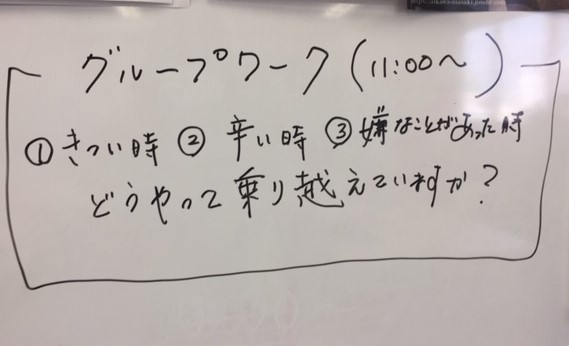 グループワーク(11:00〜)
①きつい時 ②辛い時 ③嫌なことがあった時
どうやって乗り越えていますか?